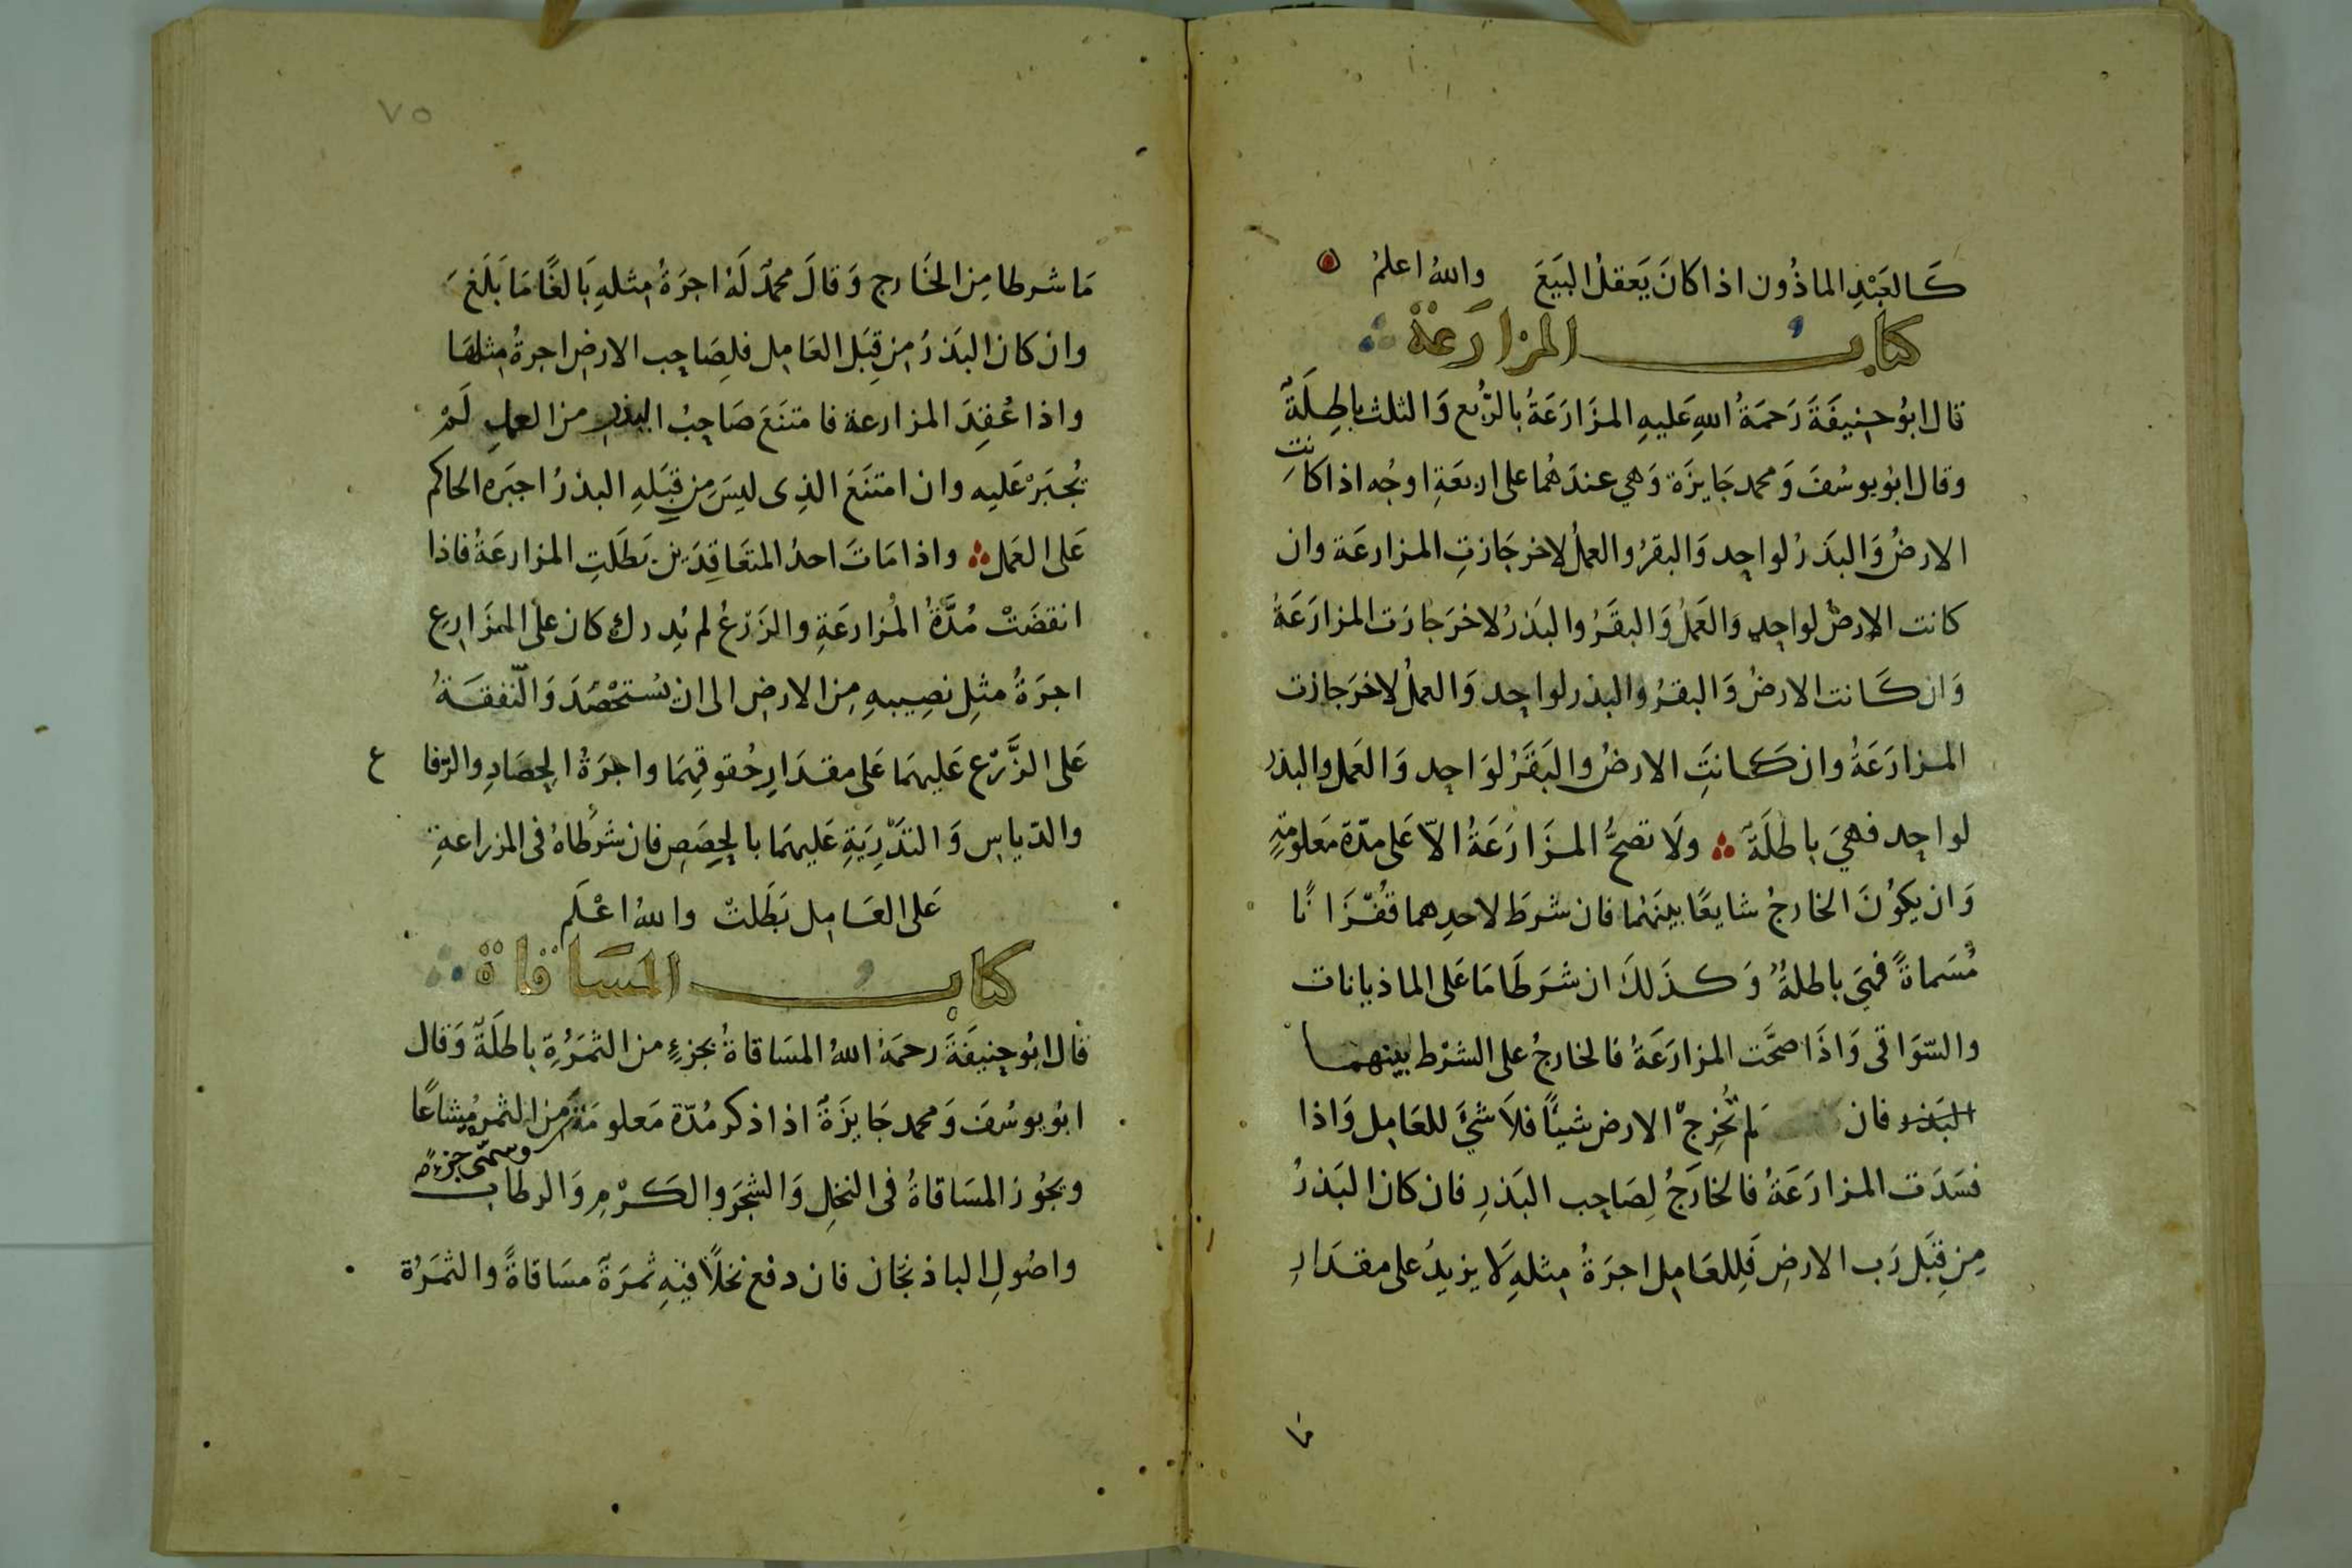 كَالعَبْدِ الماذُون اذا كانَ يَعقلُ البَيَعَ واللهُ اعلمُ
كتابُ المزارَعة
قال ابُو حنِيفَةَ رَحمَةُ اللهِ عَليهِ المزَارَعَةُ بالرُّبع وَالثلث باطِلَةٌ
وقال ابُو يوسُفَ وَمحمد جَايزَة وَهي عندَهُما على اربعَةِ اوجُه اذا كانتِ
الارضُ وَالبَذرُ لواحِد وَالبقرُ والعملُ لاخر جَازتِ المزارعَة وان
كانت الارضُ لواحِدٍ وَالعَملُ وَالبقَرُ والبَذرُ لاخرَ جازَت المزارَعَةُ
وَان كَانت الارضُ وَالبقرُ والبذر لواحِد وَالعملُ لاخرَ جازت
المزارَعَةُ وان كَانَتِ الارضُ والبَقَرُ لوَاحِد وَالعَمل والبذر
لواحِد فهيَ باطلَةٌ ولَا تصحُّ المزَارَعَةُ الاّ عَلى مدّة مَعلومَةٍ
وَان يكوُنَ الخارجُ شايعًا بينَهُما فان شرطَ لاحدِهما قُفْزَانًا
مُسَماةً فهيَ باطلةٌ وَكذَلكَ ان شَرَطَا مَا عَلى الماذيانات
والسّوَاقى وَاذَا صحَّت المزارَعَةُ فالخارجُ على الشرْط بينهما
البَذر فان لم تُخرِجْ الارض شيئًا فلَا شيَ للعَامِل وَاذا
فسَدَت المزارَعَةُ فالخَارَجُ لِصَاحِب البَذرِ فان كان البَذرُ
مِن قِبَل رَب الارضِ فَلِلعَامِل اجرَةُ مِثلهِ لَا يزيدُ على مقدَارِ
ما
٧٥
مَا شرطا مِن الخَارج وَقالَ محمدٌ لَهُ اجرَةُ مِثلهِ بَالغًا مَا بَلَغَ
وان كان البَذرُ مِن قِبَل العَامِل فلِصَاحِب الارضِ اجرةُ مِثلهَا
واذا عُقِدَ المزارعة فامتنَعَ صَاحِبُ البذر من العملِ لَمْ
يُجبَرْ عَليه وان امتنَعَ الذِى ليسَ مِن قِبَلهِ البذرُ اجبَره الحاكم
عَلى العَمل واذا مَاتَ احدُ المتعَاقِدَين بَطَلَتِ المزارعَةُ فاذا
انقضَتْ مُدَّةُ المُزارعَةِ والزَرْعُ لم يُدرك كان على المزَارِع
اجرَةُ مثِل نصِيبهِ مِن الارضِ الى ان يُستحْصَدَ وَالنّفقَةُ
عَلى الزَّرْع عَليهمَا عَلى مقدَارِ حُقوقِهِمَا واجرَةُ الحِصَادِ والرّفا ع
والدّياسِ وَالتذْرِيَةِ عَليهمَا بالحِصَصِ فان شرَطاهُ فى المزراعةِ
عَلى العَامِل بَطَلتْ واللهُ اعْلَم
كتابُ المسَاقاة
قال ابُو حنِيفَةَ رحمَهُ اللهُ المسَاقاةُ بجزءٍ من الثمَرَةِ باطلَةٌ وَقال
ابُو يوسُفَ وَمحمد جَايزَةٌ اذا ذكر مُدّة مَعلومَةً وسمّى جزءًا مِن الثمر مُشاعًا
ويجُوز المسَاقاةُ فى النخلِ وَالشجَرِ والكَرْمِ وَالرطاب
واصُولِ الباذنجَان فان دفع نخلًا فيهِ ثمرَة مسَاقاةً والثمَرَةُ